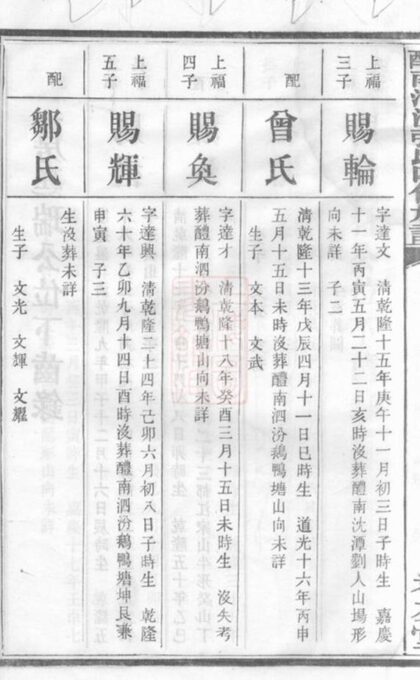 上福三子
賜輪
字達文　清乾隆十五年庚午十一月初三日子時生　嘉慶
十一年丙寅五月二十二日亥時沒葬醴南沈潭劉人山場形
向未詳　子二
配
曾氏
清乾隆十三年戊辰四月十一日巳時生　道光十六年丙申
五月十五日未時沒葬醴南泗汾鵝鴨塘山向未詳
生子　文本　文武
上福四子
賜奐
字達才　清乾隆十八年癸酉三月十五日未時生　沒失考
葬醴南泗汾鵝鴨塘山向未詳
上福五子
賜輝
字達興　清乾隆二十四年己卯六月初八日子時生　乾隆
六十年乙卯九月十四日酉時沒葬醴南泗汾鵝鴨塘坤艮兼
申寅　子三
配
鄒氏
生沒葬未詳
生子　文光　文輝　文耀